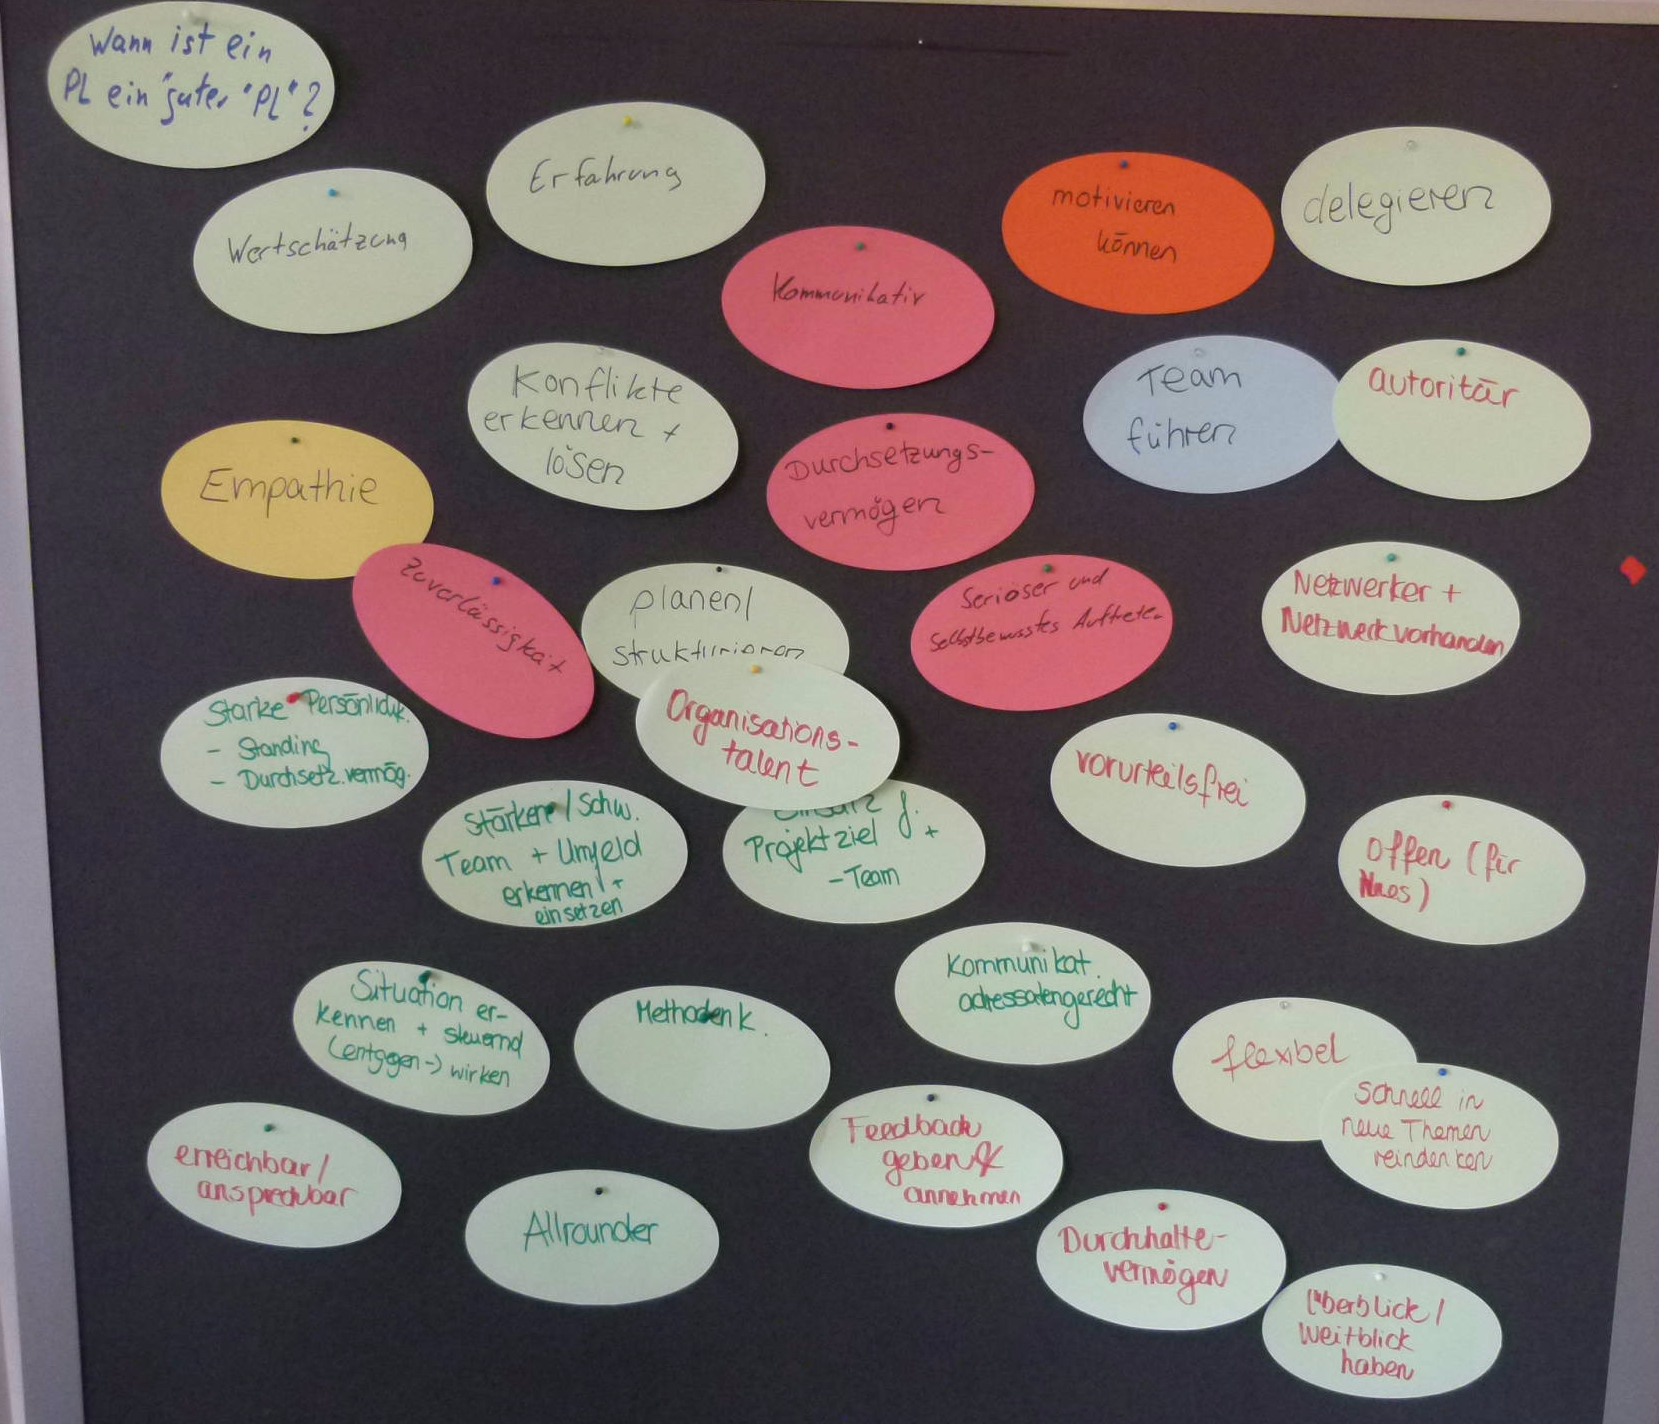 Wann ist ein
PL ein "guter "PL"?
Erfahrung
Wertschätzung
motivieren
können
delegieren
Kommunikativ
Konflikte
erkennen +
lösen
Team
führen
autoritär
Empathie
Durchsetzungs-
vermögen
Zuverlässigkeit
planen/
strukturieren
Seriöser und
Selbstbewusstes Auftreten
Netzwerker +
Netzwerk vorhanden
Starke Persönlichk.
- Standing
- Durchsetz.vermög.
Organisations-
talent
vorurteilsfrei
Stärken / Schw.
Team + Umfeld
erkennen +
einsetzen
f.
Projektziel +
- Team
Offen (für
Neues)
Situation er-
kennen + steuernd
(entgegen-) wirken
Methodenk.
Kommunikat.
adressatengerecht
flexibel
schnell in
neue Themen
reindenken
erreichbar/
ansprechbar
Allrounder
Feedback
geben &
annehmen
Durchhalte-
vermögen
Überblick /
Weitblick
haben